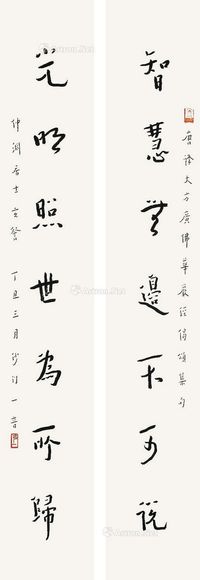 唐譯大方廣佛華嚴經偈頌集句
智慧無邊不可說
光明照世為所歸
仲淵居士 丁丑三月沙門一音